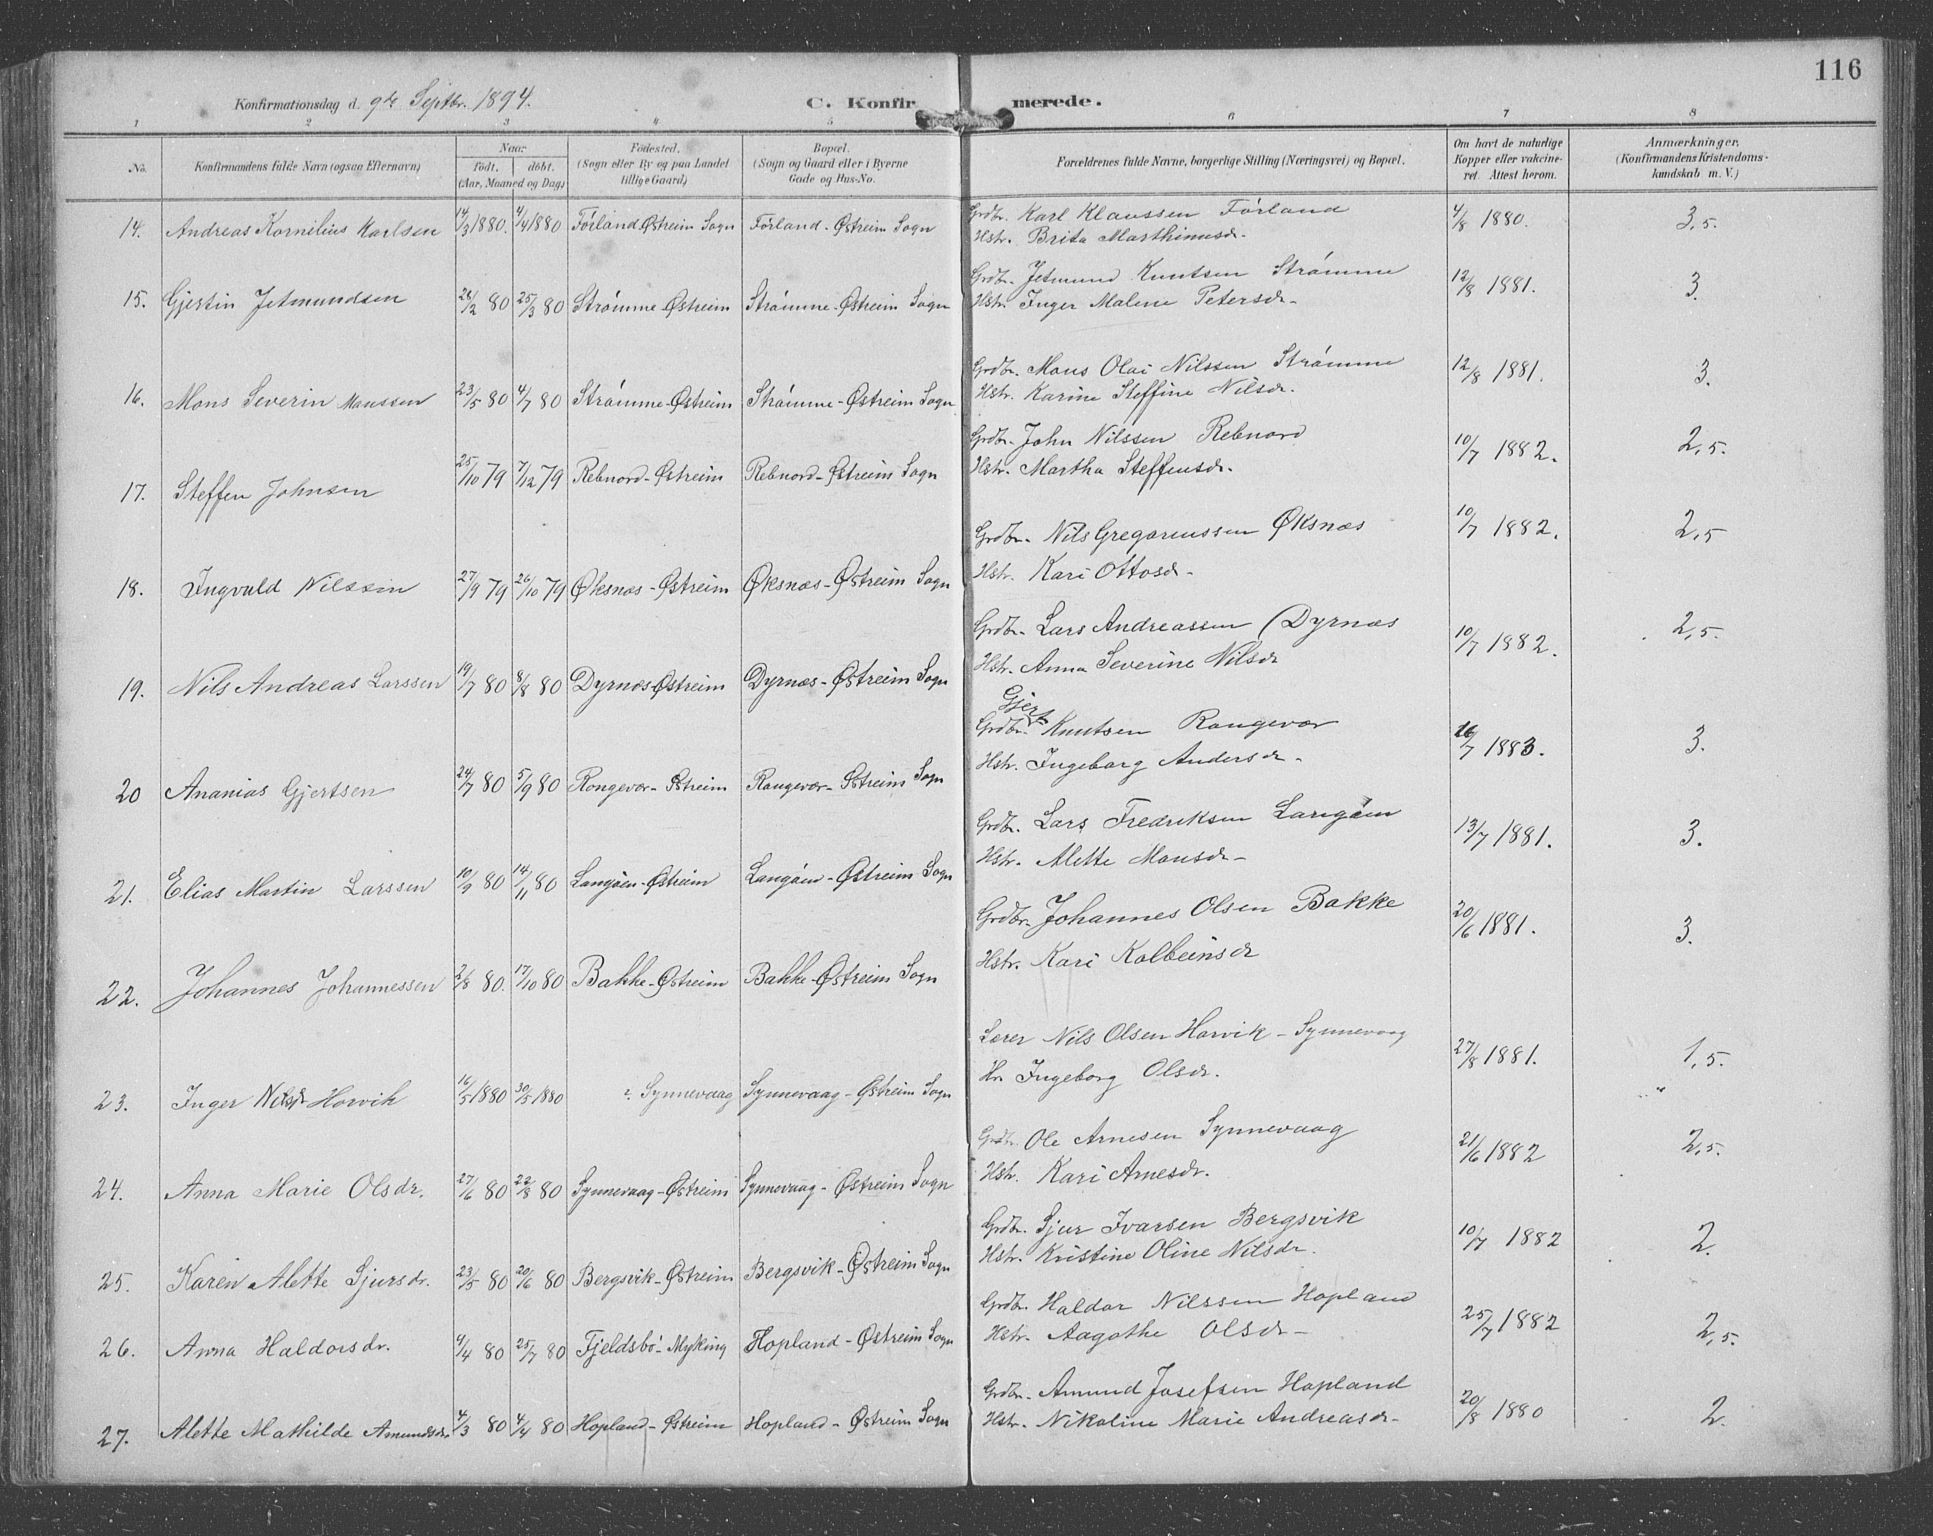 116
Konfirmationsdag d. 9de Septbr. 1894.
C. Konfirmerede.
1 2 3 4 5 6 7 8
No. Konfirmandens fulde Navn (ogsaa Efternavn) Naar Født. døbt. (Aar, Maaned og Dag) Fødested. (Sogn eller By og paa Landet tillige Gaard) Bopæl. (Sogn og Gaard eller i Byerne Gade og Hus-No. Forældrenes fulde Navne, borgerlige Stilling (Næringsvei) og Bopæl. Om havt de naturlige Kopper eller vakcineret. Attest herom. Anmærkninger. (Konfirmandens Kristendomskundskab m. V.)
14. Andreas Kornelius Karlsen 14/3 1880. 4/4 1880 Førland Østreim Sogn Førland - Østreim Sogn Grdbr. Karl Klaussen Førland 4/8 1880. 3,5.
Hstr. Brita Marthinusdr.
15. Gjertin Jetmundsen 28/2 80 25/3 80 Strømme Østreim Strømme - Østreim Sogn Grdbr. Jetmund Knutsen Strømme 12/8 1881. 3.
Hstr. Inger Malene Petersdr -
16. Mons Severin Monssen 23/5 80 4/7 80 Strømme - Østreim Strømme - Østreim Sogn Grdbr. Mons Olai Nilssen Strømme 12/8 1881. 3.
Hstr. Karine Steffine Nilsdr.
17. Steffen Johnsen 25/10 79 7/12 79 Rebnord - Østreim Rebnord - Østreim Sogn Grdbr. John Nilssen Rebnord 10/7 1882. 2,5.
Hstr. Martha Steffensdr.
18. Ingvald Nilssen 27/9 79 26/10 79 Øksnæs - Østreim Øksnæs - Østreim Sogn Grdbr. Nils Gregoriussen Øksnæs 10/7 1882. 2,5
Hstr. Kari Ottosdr -
19. Nils Andreas Larssen 19/7 80 8/8 80 Dyrnæs Østreim Dyrnæs - Østreim Sogn Grdbr. Lars Andreassen Dyrnæs 10/7 1882. 2,5.
Hstr. Anna Severine Nilsdr
20 Ananias Gjertsen 24/7 80 5/9 80 Rongevær - Østreim Rongevær - Østreim Sogn Grdbr. Gjert Knutsen Rongevær 16/7 1883. 3.
Hstr. Ingeborg Andersdr -
21. Elias Martin Larssen 10/9 80 14/11 80 Langøen - Østreim Langøen - Østreim Sogn Grdbr. Lars Fredriksen Langøen 13/7 1881. 3.
Hstr. Alette Monsdr -
22. Johannes Johannessen 2/8 80. 17/10 80 Bakke - Østreim Bakke - Østreim Sogn Grdbr. Johannes Olsen Bakke 20/6 1881. 3.
Hstr. Kari Kolbeinsdr
23. Inger Nilsdr Horvik 16/5 1880 30/5 1880 Synnevaag Synnevaag - Østreim Sogn Lærer Nils Olsen Horvik - Synnevaag 27/8 1881. 1,5.
Hr. Ingeborg Olsdr.
24. Anna Marie Olsdr. 27/6 80 22/8 80 Synnevaag - Østreim Synnevaag - Østreim Sogn Grdbr. Ole Arnesen Synnevaag 21/6 1882 2,5.
Hstr. Kari Arnesdr.
25. Karen Alette Sjursdr. 23/5 80 20/6 80 Bergsvik - Østreim Bergsvik - Østreim Sogn Grdbr. Sjur Ivarsen Bergsvik 10/7 1882 2.
Hstr. Kristine Oline Nilsdr.
26. Anna Haldorsdr. 4/4 80 25/7 80 Fjeldsbø - Myking Hopland - Østreim Sogn Grdbr. Haldor Nilssen Hopland 25/7 1882 2,5.
Hstr. Aagathe Olsdr -
27. Alette Mathilde Amundsdr. 4/3 80 4/4 80 Hopland - Østreim Hopland - Østreim Sogn Grdbr. Amund Josefsen Hopland 20/8 1880 2.
Hstr. Nikoline Marie Andreasdr -